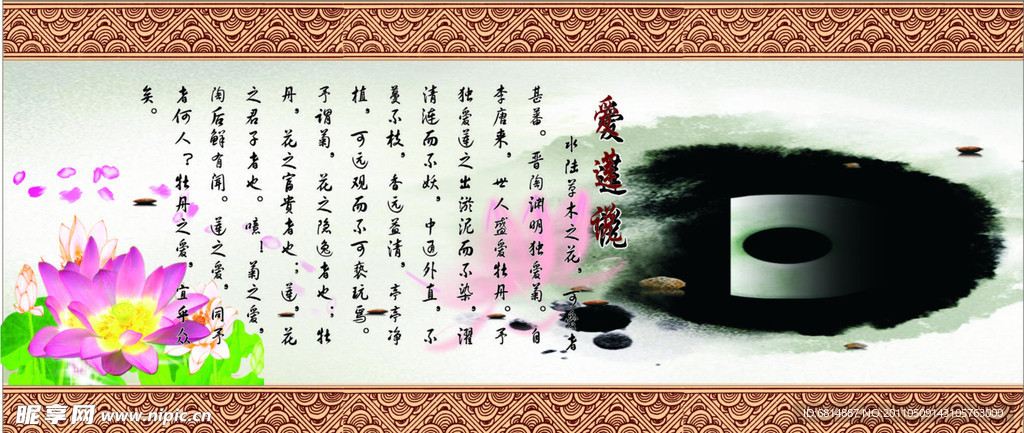 爱莲说
水陆草木之花，可爱者
甚蕃。晋陶渊明独爱菊。自
李唐来，世人盛爱牡丹。予
独爱莲之出淤泥而不染，濯
清涟而不妖，中通外直，不
蔓不枝，香远益清，亭亭净
植，可远观而不可亵玩焉。
予谓菊，花之隐逸者也；牡
丹，花之富贵者也；莲，花
之君子者也。噫！菊之爱，
陶后鲜有闻。莲之爱，同予
者何人？牡丹之爱，宜乎众
矣。
昵享网 www.nipic.cn
ID:6814867 NO.20110509143105763000